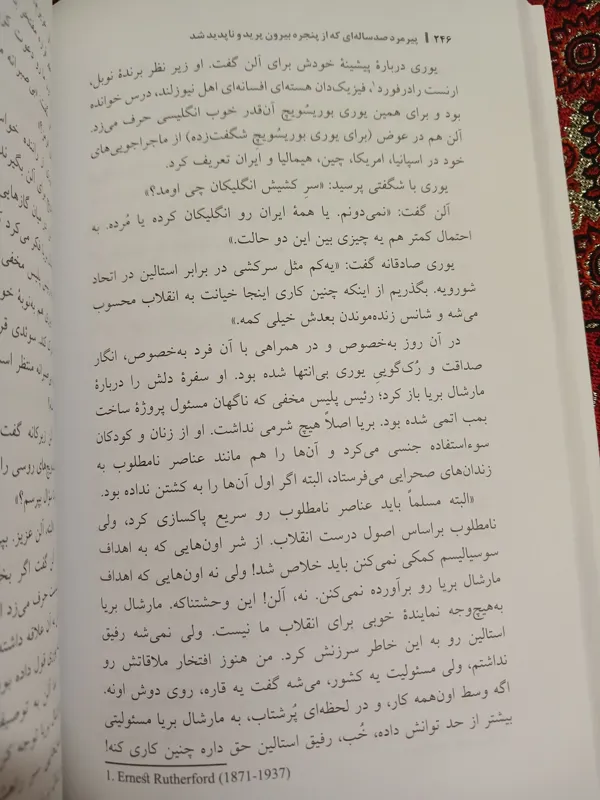 ۲۴۶ | پیرمرد صدساله‌ای که از پنجره بیرون پرید و ناپدید شد
یوری دربارهٔ پیشینهٔ خودش برای آلن گفت. او زیر نظر برندهٔ نوبل،
ارنست رادرفورد۱، فیزیک‌دان هسته‌ای افسانه‌ای اهل نیوزلند، درس خوانده
بود و برای همین یوری بوریسویچ آن‌قدر خوب انگلیسی حرف می‌زد.
آلن هم در عوض (برای یوری بوریسویچ شگفت‌زده) از ماجراجویی‌های
خود در اسپانیا، امریکا، چین، هیمالیا و ایران تعریف کرد.
یوری با شگفتی پرسید: «سرِ کشیش انگلیکان چی اومد؟»
آلن گفت: «نمی‌دونم. یا همهٔ ایران رو انگلیکان کرده یا مُرده. به
احتمال کمتر هم یه چیزی بین این دو حالت.»
یوری صادقانه گفت: «یه‌کم مثل سرکشی در برابر استالین در اتحاد
شورویه. بگذریم از اینکه چنین کاری اینجا خیانت به انقلاب محسوب
می‌شه و شانس زنده‌موندن بعدش خیلی کمه.»
در آن روز به‌خصوص و در همراهی با آن فرد به‌خصوص، انگار
صداقت و رُک‌گوییِ یوری بی‌انتها شده بود. او سفرهٔ دلش را دربارهٔ
مارشال بریا باز کرد؛ رئیس پلیس مخفی که ناگهان مسئول پروژهٔ ساخت
بمب اتمی شده بود. بریا اصلاً هیچ شرمی نداشت. او از زنان و کودکان
سوءاستفاده جنسی می‌کرد و آن‌ها را هم مانند عناصر نامطلوب به
زندان‌های صحرایی می‌فرستاد، البته اگر اول آن‌ها را به کشتن نداده بود.
«البته مسلماً باید عناصر نامطلوب رو سریع پاکسازی کرد، ولی
نامطلوب براساس اصول درست انقلاب. از شر اون‌هایی که به اهداف
سوسیالیسم کمکی نمی‌کنن باید خلاص شد! ولی نه اون‌هایی که اهداف
مارشال بریا رو برآورده نمی‌کنن. نه، آلن! این وحشتناکه. مارشال بریا
به‌هیچ‌وجه نمایندهٔ خوبی برای انقلاب ما نیست. ولی نمی‌شه رفیق
استالین رو به این خاطر سرزنش کرد. من هنوز افتخار ملاقاتش رو
نداشتم، ولی مسئولیت یه کشور، می‌شه گفت یه قاره، روی دوش اونه.
اگه وسط اون‌همه کار، و در لحظه‌ای پُرشتاب، به مارشال بریا مسئولیتی
بیشتر از حد توانش داده، خُب، رفیق استالین حق داره چنین کاری کنه!
1. Ernest Rutherford (1871-1937)